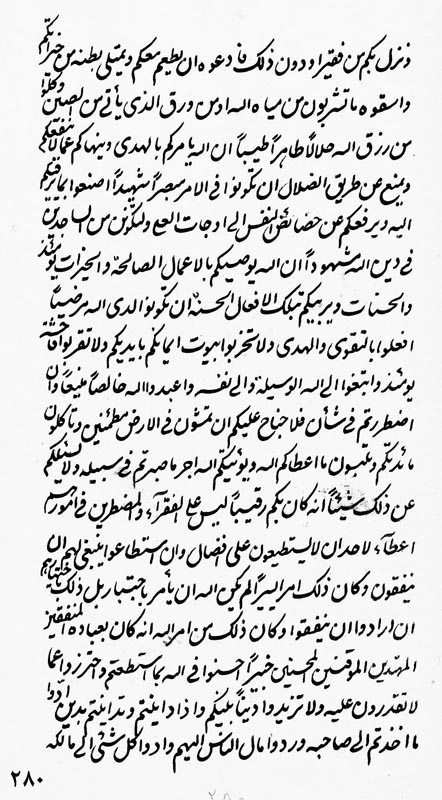 نزل بكم من فقير او دون ذلك فادعوه ان يطعم معكم ويمتلي بطنه من خبزائكم
واسقوه ما تشربون من مياه الله او من ورق الذي يأتي من الصين وكلوا
من رزق الله حلالاً طاهراً طيباً ان الله يامركم بالهدى وينهاكم عما لا ينفعكم
ويمنع عن طريق الضلال ان تكونوا في الامر مبصراً شهيداً اصنعوا بما يرفعكم
اليه ويرفعكم عن خصائص النفس الى اوجات العلو ولتكونن من الساجدين
في دين الله مشهوداً ان الله يوصيكم بالاعمال الصالحة والخيرات يومئذ
والحسنات ويربيكم بتلك الافعال الحسنة ان تكونوا لدى الله مرضيا
افعلوا بالتقوى والهدى ولا تخربوا بيوت ايمانكم بايديكم ولا تقربوا فاحشة
يومئذ وابتغوا الى الله الوسيلة والى نفسه واعبدوا الله خالصاً منيعاً وان
اضطررتم في شأن فلا جناح عليكم ان تمشون في الارض مطمئنين وتاكلون
مائدتكم وتلبسون ما اعطاكم الله ويوتيكم الله اجر ما صبرتم في سبيله ولا يسئلكم
عن ذلك شيئاً انه كان بكم رقيباً ليس على الفقرآء والمضطرين في امورهم
اعطآء لاحد ان لا يستطيعون على افضال وان استطاعوا ينبغي لهم ان
ينفقون وكان ذلك امراً يسيراً لم يكن الله ان يأمر باجتبار بل ذلك
ان ارادوا ان ينفقوا وكان ذلك من امر الله انه كان بعباده المنفقين
المهتدين الموقنين المحسنين خبيراً احسنوا في الله بما استطعتم واحترزوا عما
لا تقدرون عليه ولا تزيدوا ديناً عليكم واذا داينتم وتداينتم بدين ادوا
ما اخذتم الى صاحبه وردوا مال الناس اليهم وادوا كل شئ الى مالكه
٢٨٠